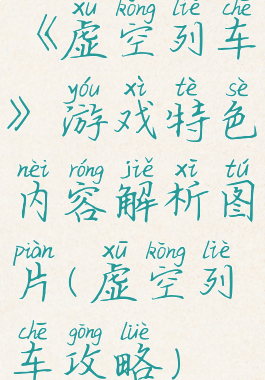 xū kōng liè chē
《虚空列车
yóu xì tè sè
》游戏特色
nèi róng jiě xī tú
内容解析图
piàn xū kōng liè
片(虚空列
chē gōng lüè
车攻略)